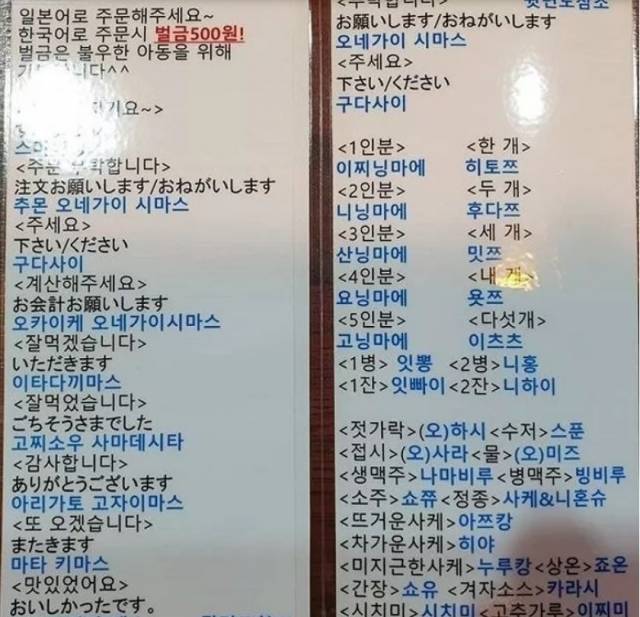 일본어로 주문해주세요~
한국어로 주문시 벌금500원!
벌금은 불우한 아동을 위해
<주문 부탁합니다>
注文お願いします/おねがいします
추몬 오네가이 시마스
<주세요>
下さい/ください
구다사이
<계산해주세요>
お会計お願いします
오카이케 오네가이시마스
<잘먹겠습니다>
いただきます
이타다끼마스
<잘먹었습니다>
ごちそうさまでした
고찌소우 사마데시타
<감사합니다>
ありがとうございます
아리가토 고자이마스
<또 오겠습니다>
またきます
마타 키마스
<맛있었어요>
おいしかったです。
お願いします/おねがいします
오네가이 시마스
<주세요>
下さい/ください
구다사이
<1인분> <한 개>
이찌닝마에 히토쯔
<2인분> <두 개>
니닝마에 후다쯔
<3인분> <세 개>
산닝마에 밋쯔
<4인분> <내 개>
요닝마에 욧쯔
<5인분> <다섯개>
고닝마에 이츠츠
<1병> 잇뽕 <2병>니홍
<1잔>잇빠이<2잔>니하이
<젓가락>(오)하시<수저>스푼
<접시>(오)사라<물>(오)미즈
<생맥주>나마비루<병맥주>빙비루
<소주>쇼쮸<정종>사케&니혼슈
<뜨거운사케>아쯔캉
<차가운사케>히야
<미지근한사케>누루캉<상온>죠온
<간장>쇼유 <겨자소스>카라시
<시치미>시치미<고추가루>이찌미